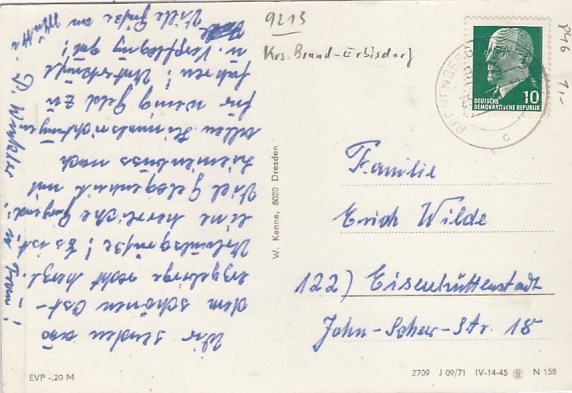 Wir senden aus
dem schönen Ost-
erzgebirge recht herzl.
Urlaubsgrüße! Es ist
eine herrliche Gegend!
Viel Gelegenheit mit
Linienbus nach
allen Himmelsrichtungen
für wenig Geld zu
fahren! Unterkunft
u. Verpflegung gut!
Viele Grüße an
Mutti
9213
Krs. Brand-Erbisdorf
RECHENBERG
DEUTSCHE
DEMOKRATISCHE REPUBLIK
10
1,-
Familie
Erich Wilde
122) Eisenhüttenstadt
John-Scheer-Str. 18
W. Kenne, 8020 Dresden
EVP -,20 M
2709 J 09/71 IV-14-45 N 158